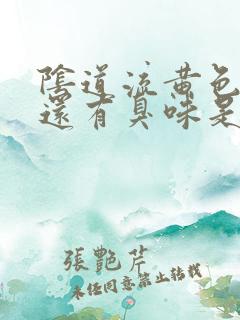 陰道流黃色
還有臭味是
張艷芹
未經同意禁止轉載